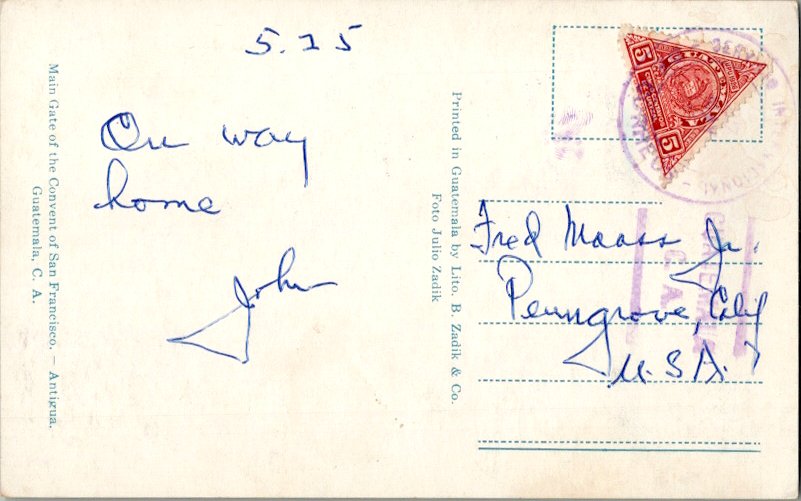 5.25
On way
home
John
Main Gate of the Convent of San Francisco. – Antigua.
Guatemala, C. A.
Printed in Guatemala by Lito. B. Zadik & Co.
Foto Julio Zadik
5
GUATEMALA
5
NACIONAL
GUATEMALA
C. A.
Fred Maass Jr.
Penngrove, Calif
U.S.A.